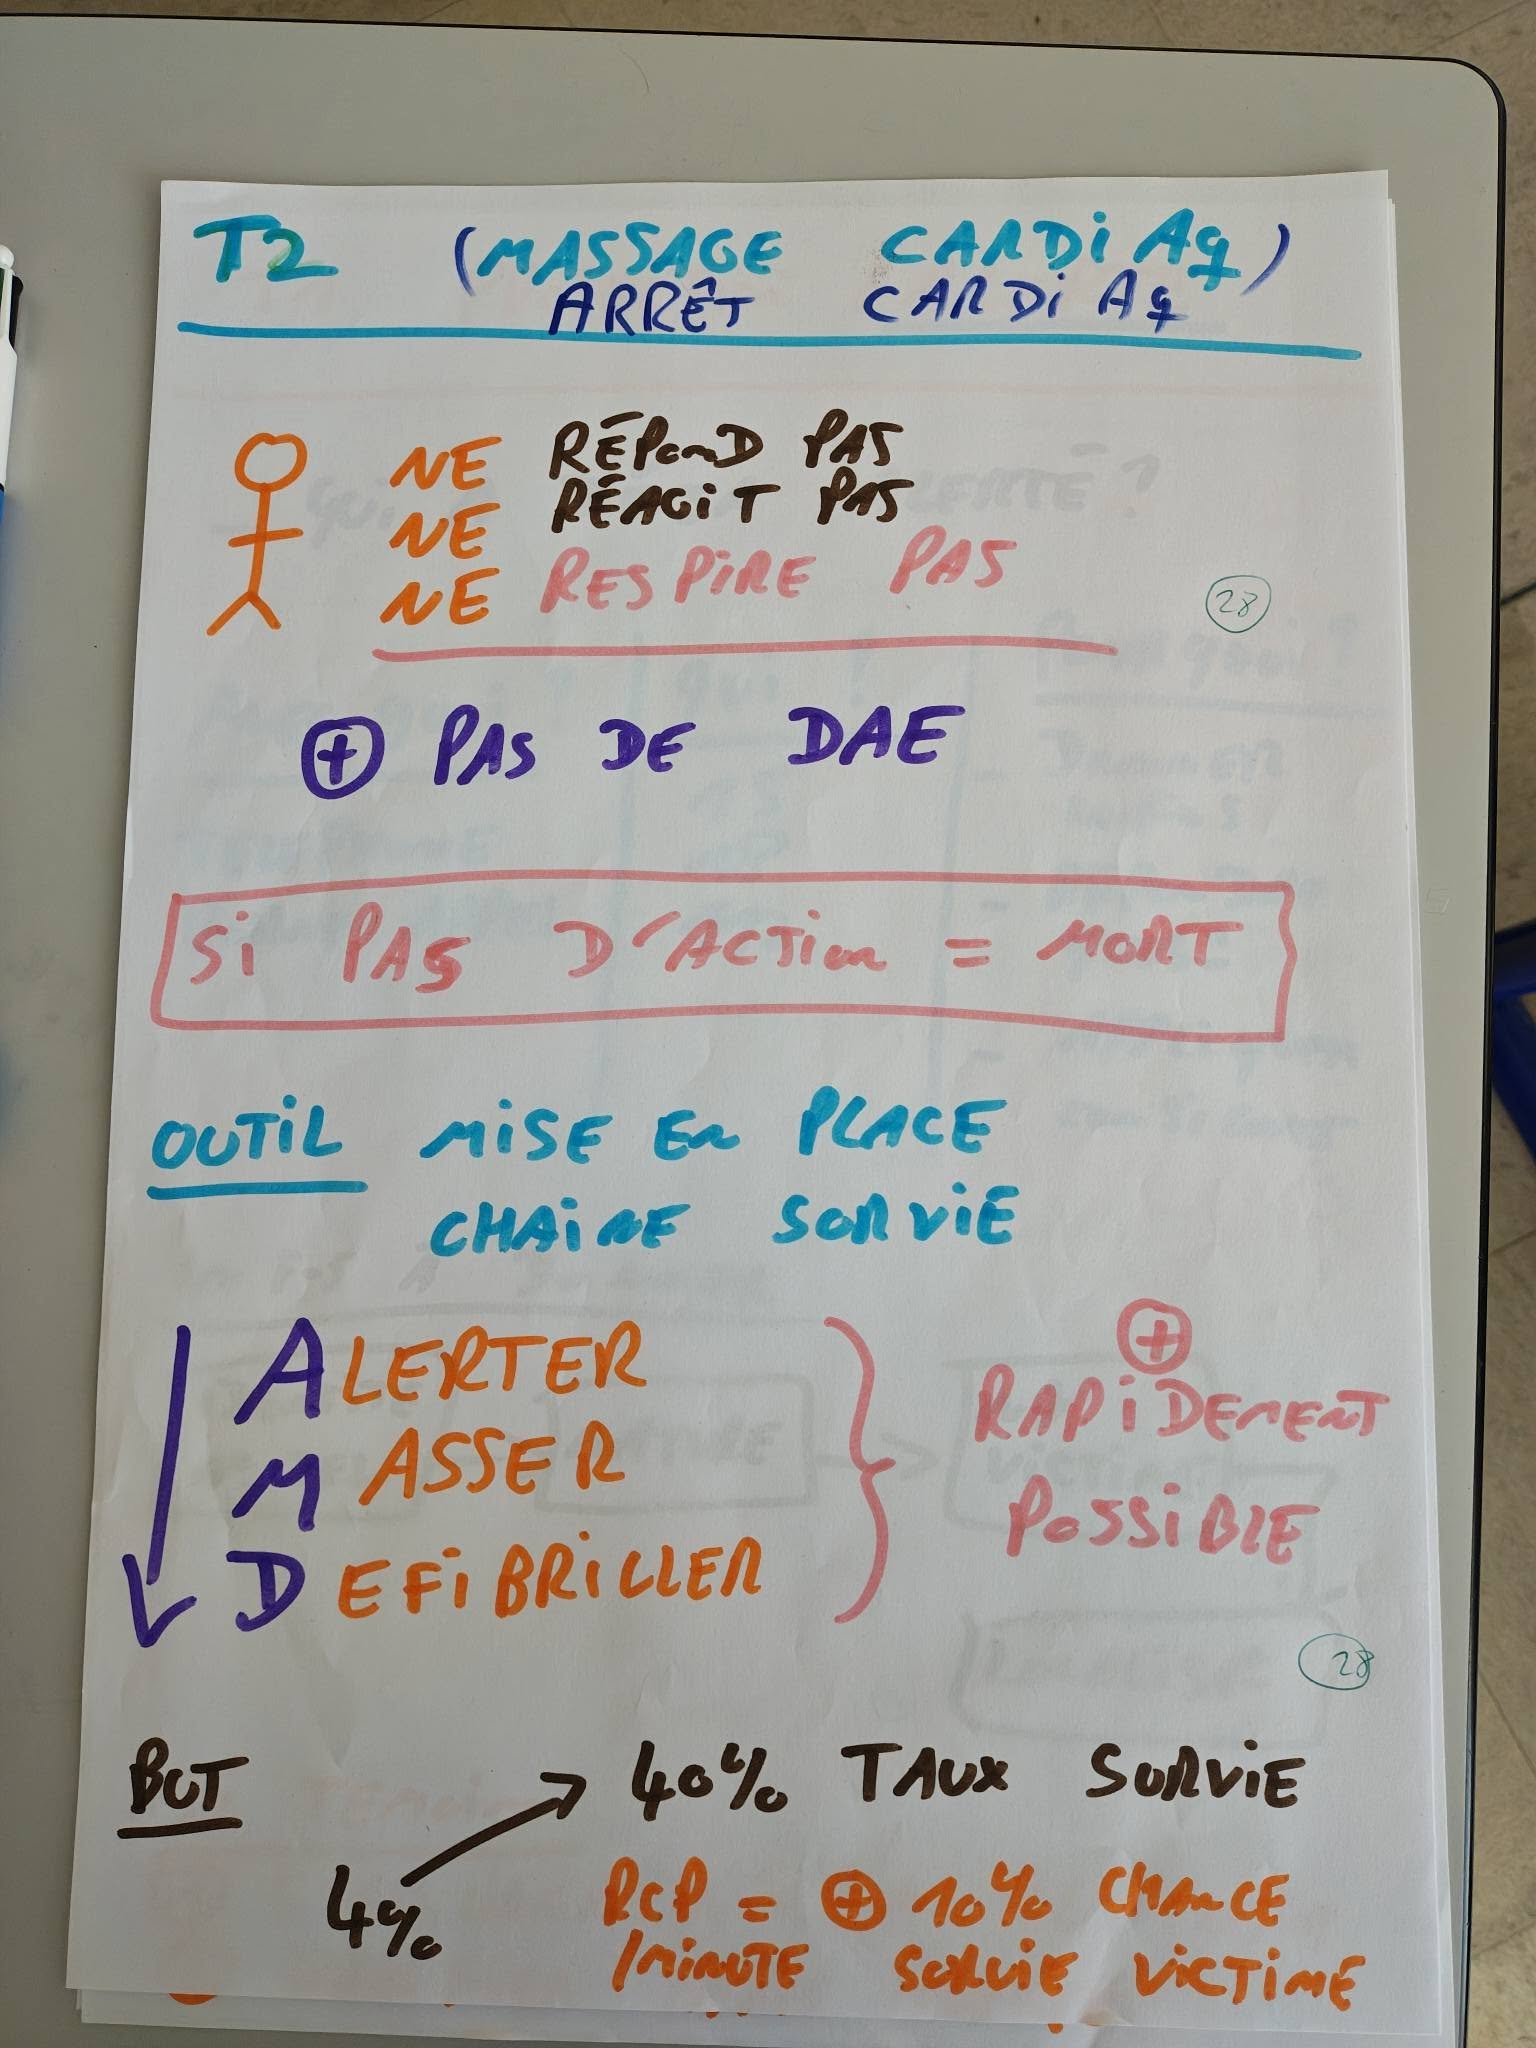 T2 (MASSAGE CARDiAq)
ARRÊT CARDiAq
NE RÉPOND PAS
NE RÉAGIT PAS
NE RESPIRE PAS
28
+ PAS DE DAE
Si PAS D'ACTION = MORT
OUTIL MISE EN PLACE
CHAINE SURVIE
ALERTER
MASSER
DEFIBRILLER
+
RAPIDEMENT
POSSIBLE
28
BUT
40% TAUX SURVIE
4%
RCP = + 10% CHANCE
/MINUTE SURVIE VICTIME